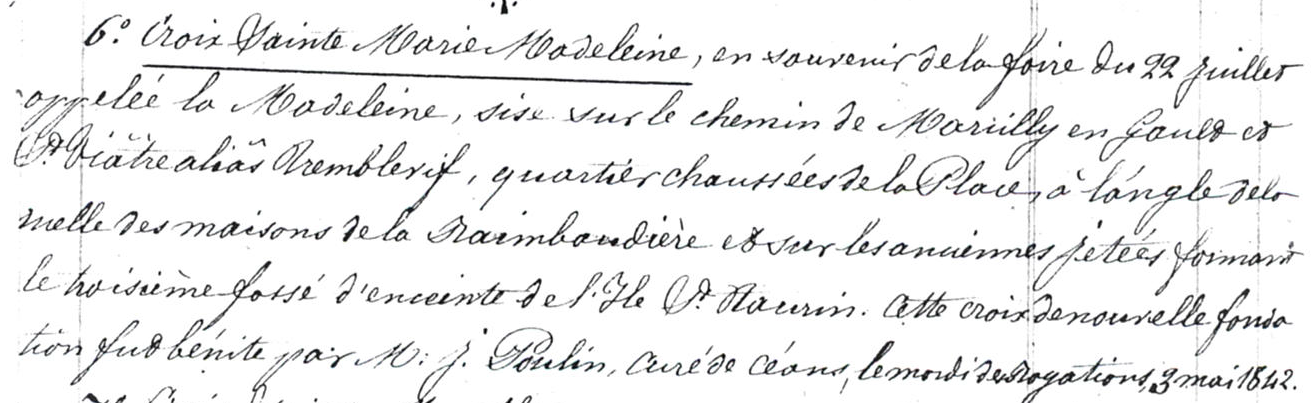 6.° Croix Sainte Marie Madeleine, en souvenir de la foire du 22 juillet
appelée la Madeleine, sise sur le chemin de Marcilly en Gault et
St. Viâtre aliàs Tremblevif, quartier chaussées de la Place, à l'angle de la
ruelle des maisons de la Raimbaudière et sur les anciennes jetées formant
le troisième fossé d'enceinte de l'Ile St. Taurin. Cette croix de nouvelle fonda
tion fut bénite par M: J. Poulin, curé de céans, le mardi des Rogations, 3 mai 1842.